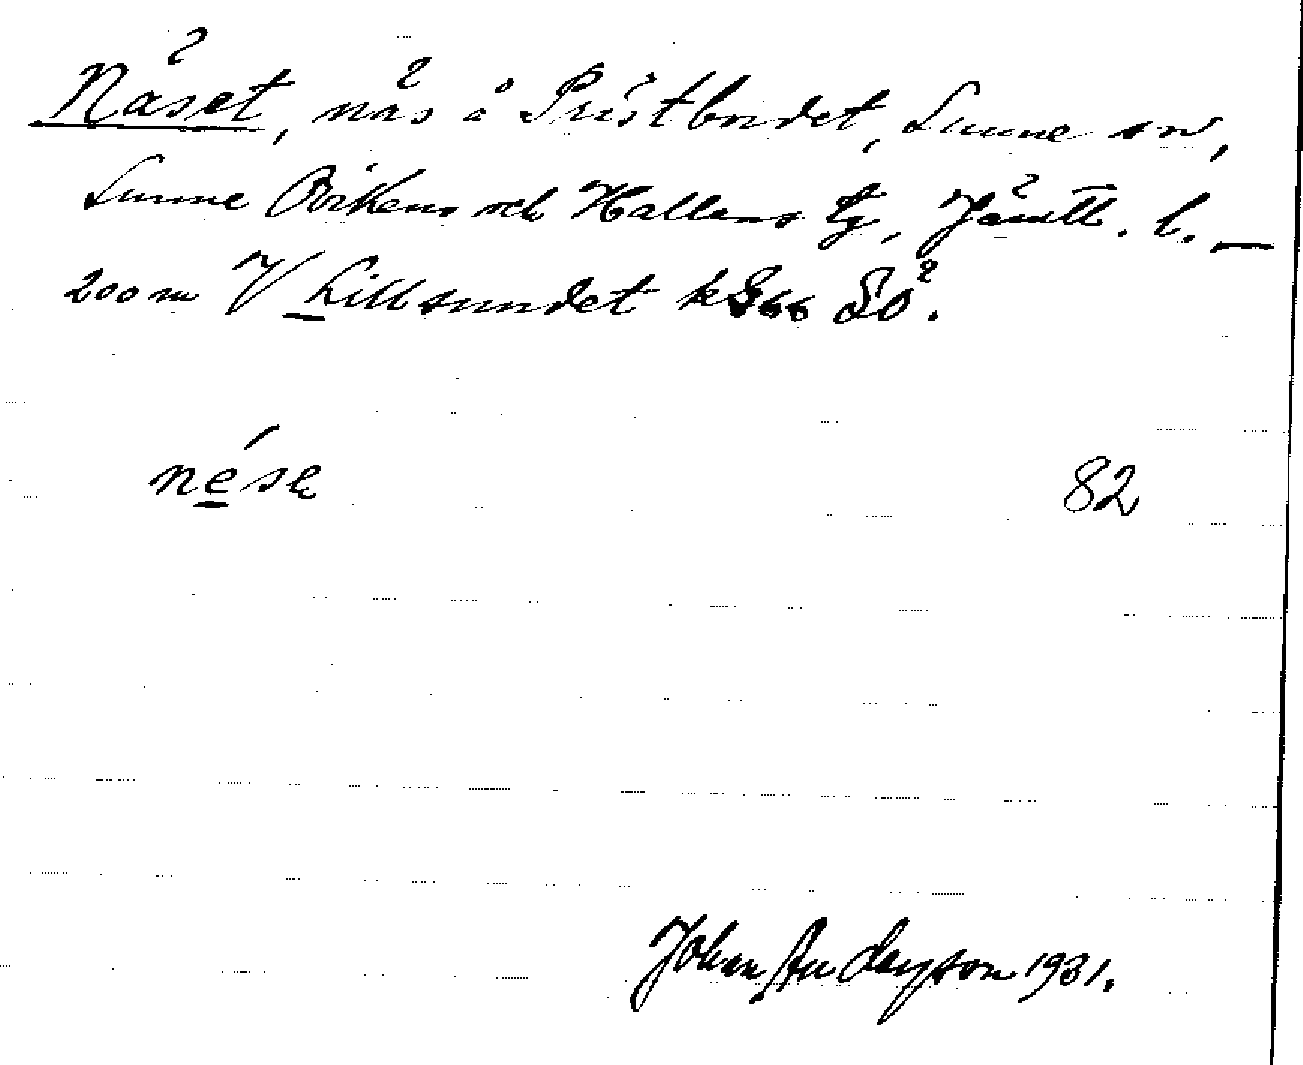 Näset, näs å Prästbordet, Sunne sn,
Sunne Oviken och Hallens tg, Jämtl. l. —
200 m V Lillsundet k 866 SÖ.
nése 82
Johan Anderzson 1931.